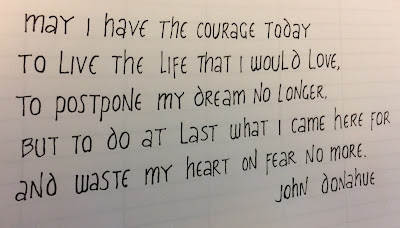 may I have the courage today
to live the life that I would love,
to postpone my dream no longer,
but to do at last what I came here for
and waste my heart on fear no more.
John Donahue